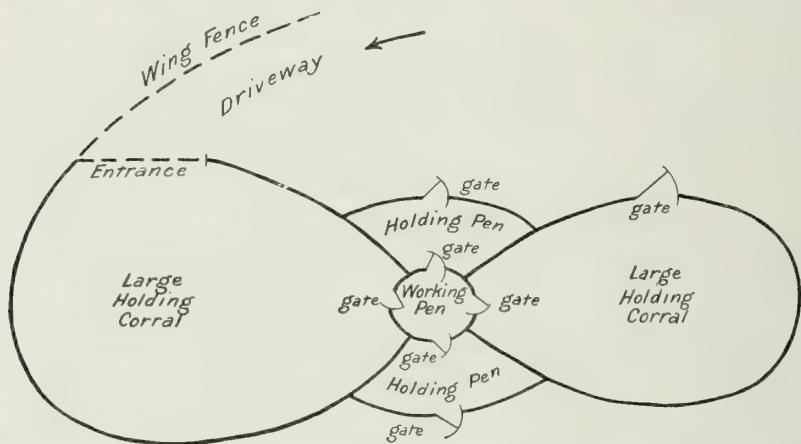 Wing Fence
Driveway
Entrance
gate
Holding Pen
gate
gate
Large
Holding
Corral
gate
Working
Pen
gate
Large
Holding
Corral
gate
Holding Pen
gate